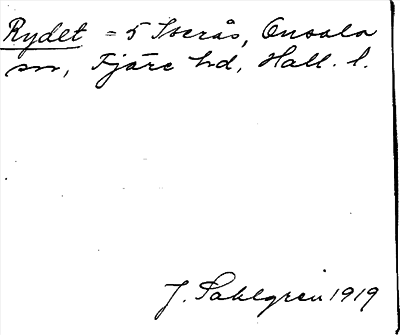 Rydet = 5 Iserås, Onsala
sn, Fjäre hd, Hall. l.
J. Sahlgren 1919